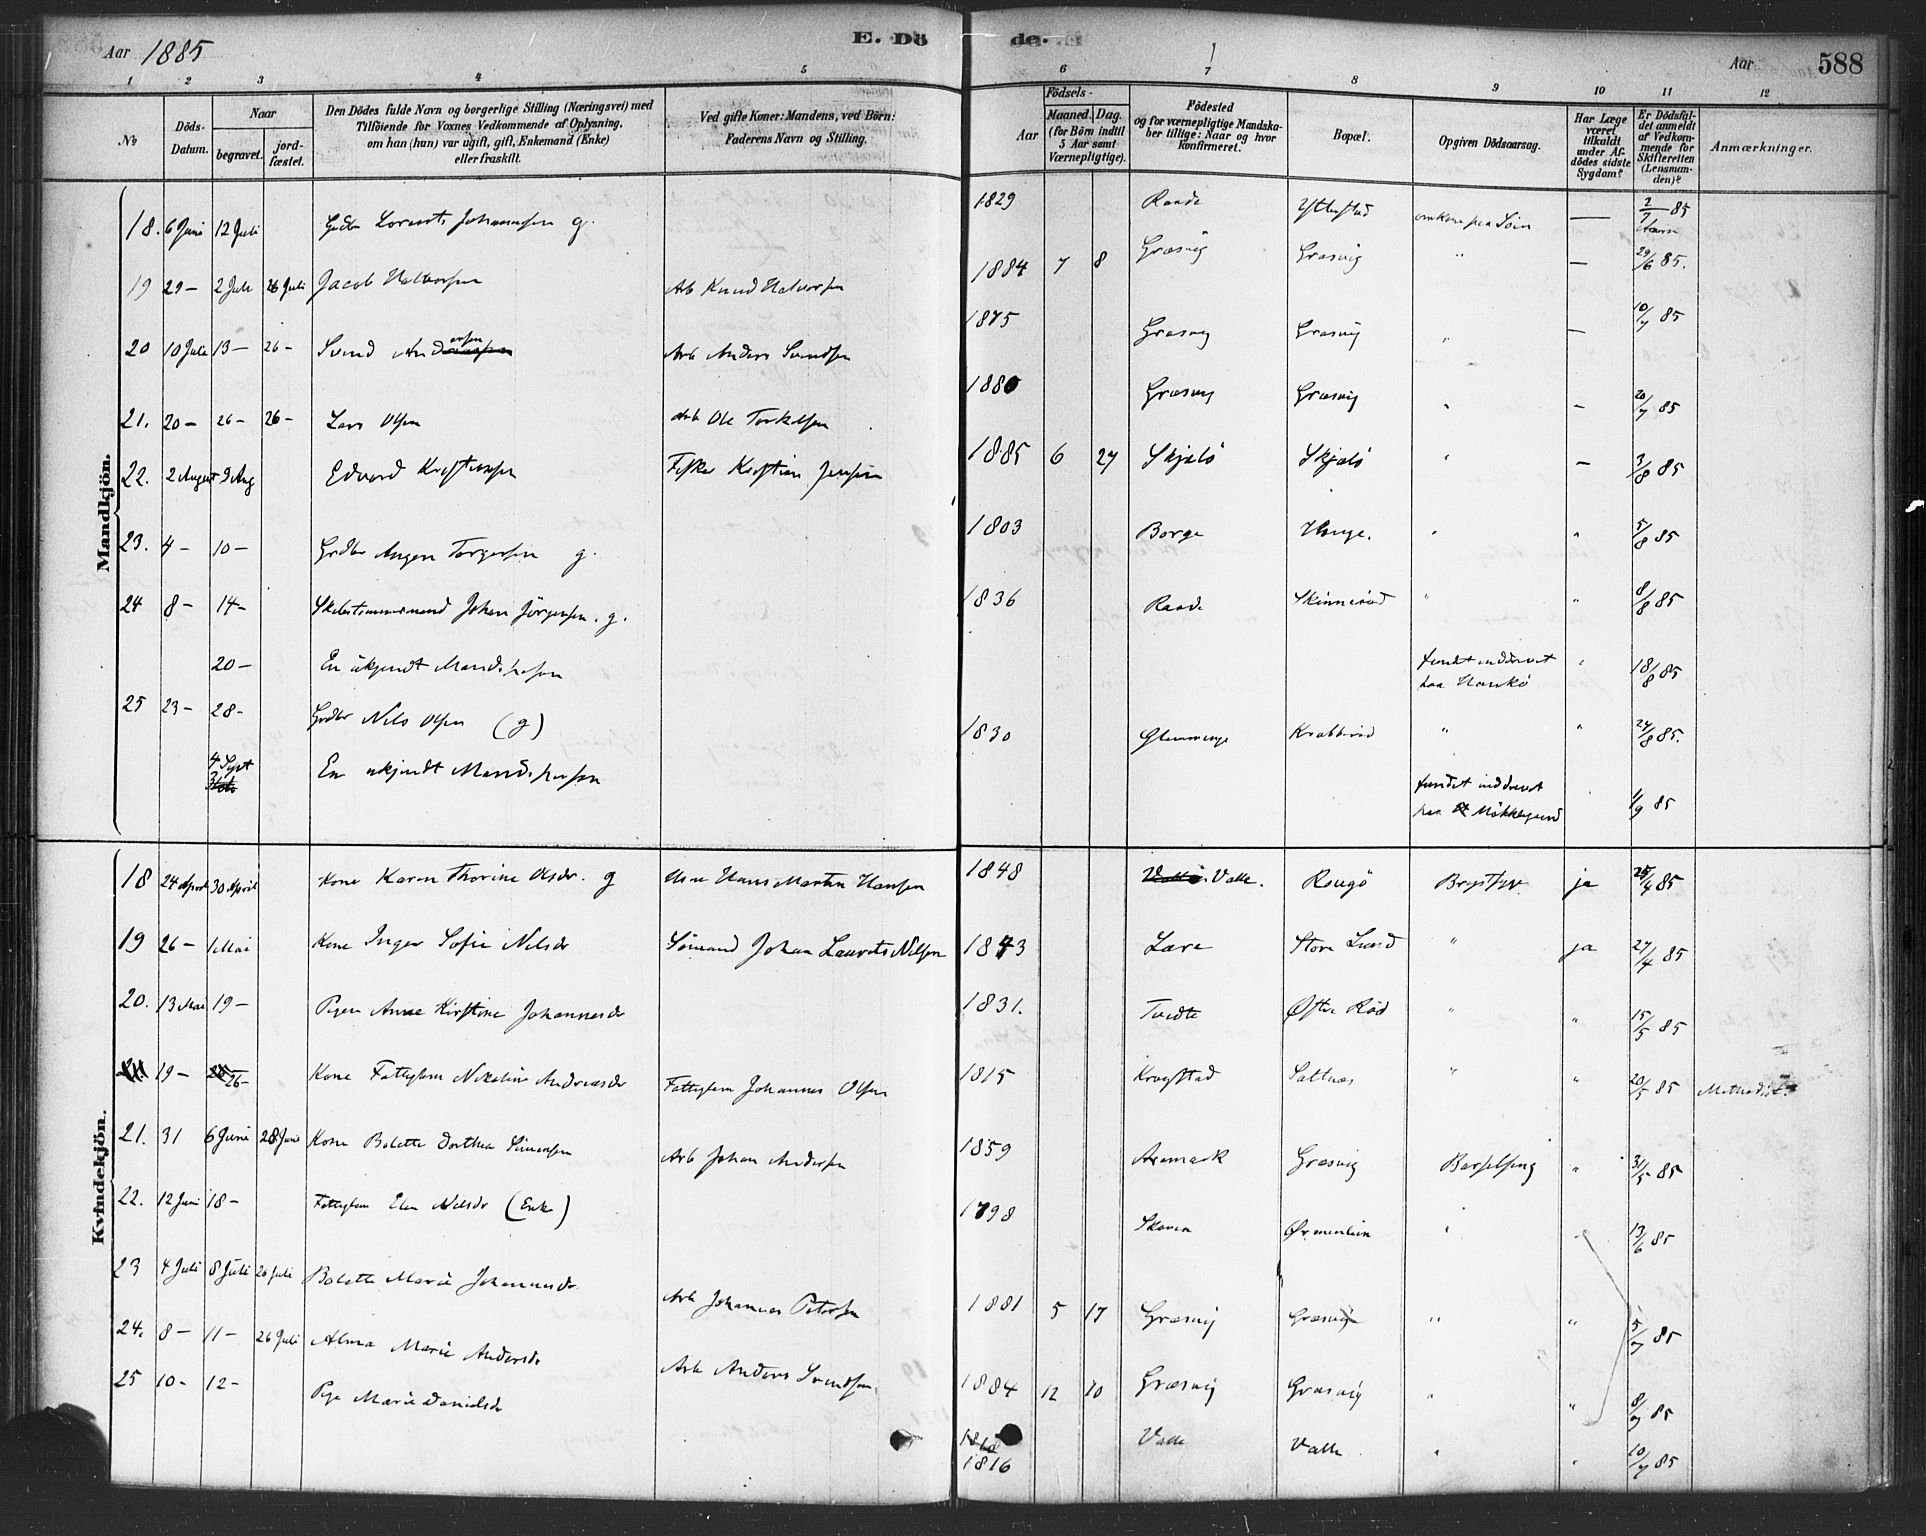 Aar 1885
E. Dö de.
Aar 588
1 2 3 4 5 6 7 8 9 10 11 12
No
Döds-Datum.
Naar
begravet.
jord-fæstet.
Den Dödes fulde Navn og borgerlige Stilling (Næringsvei) med
Tilföiende for Voxnes Vedkommende af Oplysning,
om han (hun) var ugift, gift, Enkemand (Enke)
eller fraskilt.
Ved gifte Koner: Mandens, ved Börn:
Faderens Navn og Stilling.
Födsels-
Aar
Maaned. Dag.
(for Börn indtil
5 Aar samt
Værnepligtige).
Födested
og for værnepligtige Mandska-
ber tillige: Naar og hvor
konfirmeret.
Bopæl.
Opgiven Dödsaarsag.
Har Læge
været
tilkaldt
under Af-
dödes sidste
Sygdom?
Er Dödsfal-
det anmeldt
af Vedkom-
mende for
Skifteretten
(Lensman-
den)?
Anmærkninger.
Mandkjön.
18. 6 Juni 12 Juli Lorents Johannesen g. 1829 Raade — 2/7 85
19 29 — 2 Juli 26 Juli Jacob Halvorsen Arb Knud Halvorsen 1884 7 8 Græsvig Græsvig " — 29/6 85.
20 10 Juli 13 — 26 — Svend Andersen Arb Anders Svendsen 1875 Græsvig Græsvig " — 10/7 85
21. 20 — 26 — 26 — Lars Olsen Arb Ole Torkelsen 1880 Græsvig Græsvig " — 20/7 85
22. 2 August 3 Aug Edvard Kristiansen Fisker Kristian Jensen 1885 6 27 Skjælö Skjælö " — 3/8 85
23. 4 — 10 — Grdbr Torgersen g. 1803 Borge Hauge. " " 5/8 85
24 8 — 14 — Johan Jörgensen. g. 1836 Raade Skinneröd " " 8/8 85
20 — En ukjendt Mandsperson fundet inddrevet paa Hankö " 18/8 85
25 23 — 28 — Grdbr Nils Olsen (g) 1830 Glemminge Krabberöd " " 24/8 85.
4 Sept En ukjendt Mandsperson fundet inddrevet paa 1/9 85
Kvindekjön.
18 24 April 30 April Kone Karen Thorine Olsdr. g Hans Martin Hansen 1848 Valle. Rougö ja 25/4 85
19 26 — 1 Mai Kone Inger Sofie Nilsdr Sömand Johan Laurits Nilsen 1843 Store Lund " ja 27/4 85
20. 13 Mai 19 — Pigen Anne Kirstine Johannesdr 1831. Tvedte Østre Röd " " 15/5 85
19 — 26 — Kone Fattiglem Nikoline Andreasdr Fattiglem Johannes Olsen 1815 Kraagstad Saltnæs " " 20/5 85 Methodist.
21. 31 6 Juni 28 Juni Kone Bolette Dorthea Simensen Arb Johan Andersen 1859 Aremark Græsvig Barselseng " 31/5 85
22. 12 Juni 18 — Fattiglem Elen Nilsdr (Enke) 1798 " " 13/6 85
23 4 Juli 8 Juli 26 Juli Bolette Marie Johannesdr Arb Johannes Petersen 1881 5 17 Græsvig Græsvig " " 5/7 85
24. 8 — 11 — 26 Juli Alma Marie Andersdr Arb Anders Svendsen. 1884 12 10 Græsvig Græsvig " " 8/7 85
25 10 — 12 — Pige Marie Danielsdr 1816 Valle Valle " " 10/7 85